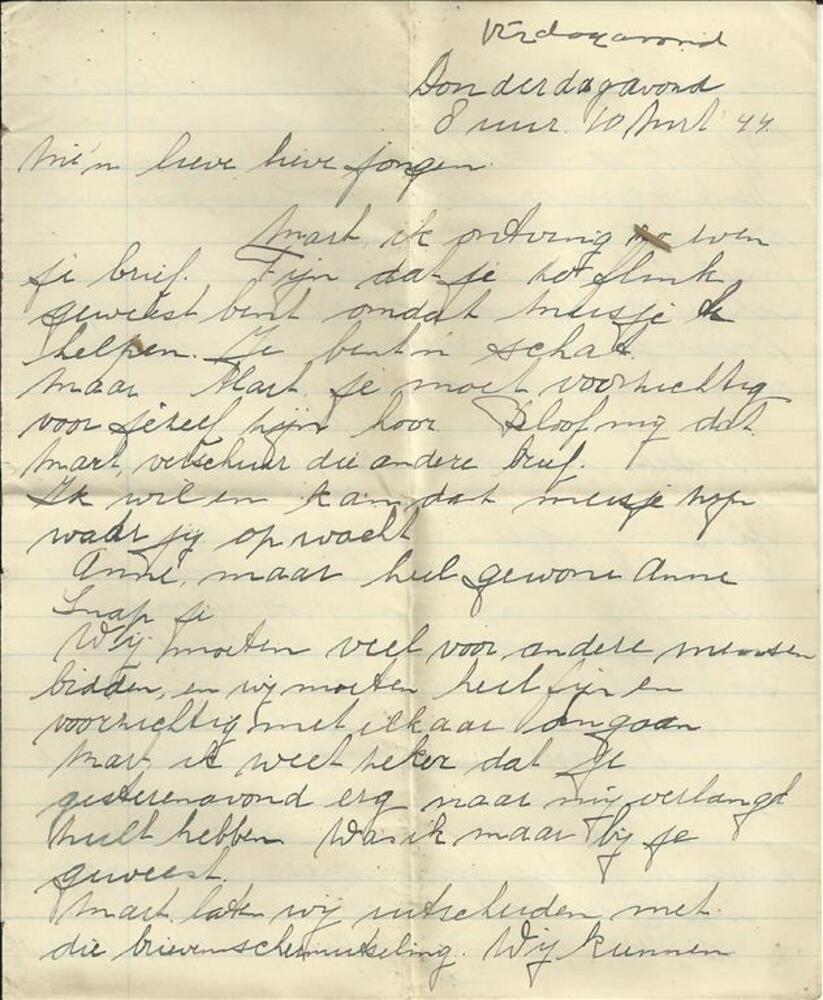 Donderdagavond
8 uur 10 Mrt 44.
Mi'n lieve lieve jongen
Mart, ik ontving even
je brief. Fijn dat je zo flink
geweest bent omdat meisje te
helpen. Je bent 'n schat.
Maar Mart je moet voorzichtig
voor jezelf zijn hoor. Geloof mij dat
Mart, verscheur die andere brief.
Ik wil en kan dat meisje zijn
waar jij op wacht
Anne, maar heel gewone Anne
Snap je
Wij moeten veel voor andere mensen
bidden, en wij moeten heel fijn en
voorzichtig met elkaar omgaan
Mart, ik weet zeker dat je
gisterenavond erg naar mij verlangd
hult hebben. Was ik maar bij je
geweest.
Mart laten wij uitscheiden met
die brievenschermutseling. Wij kunnen